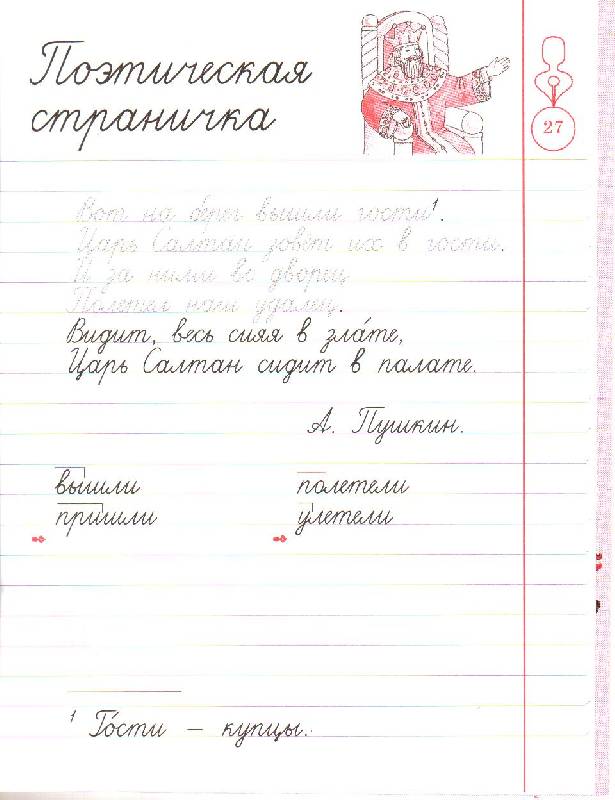 Поэтическая
страничка
27
Вот на берег вышли гости¹.
Царь Салтан зовёт их в гости.
И за ними во дворец
Полетел наш удалец.
Видит, весь сияя в зла́те,
Царь Салтан сидит в палате.
А. Пушкин.
вышли полетели
пришли улетели
¹ Го́сти – купцы.